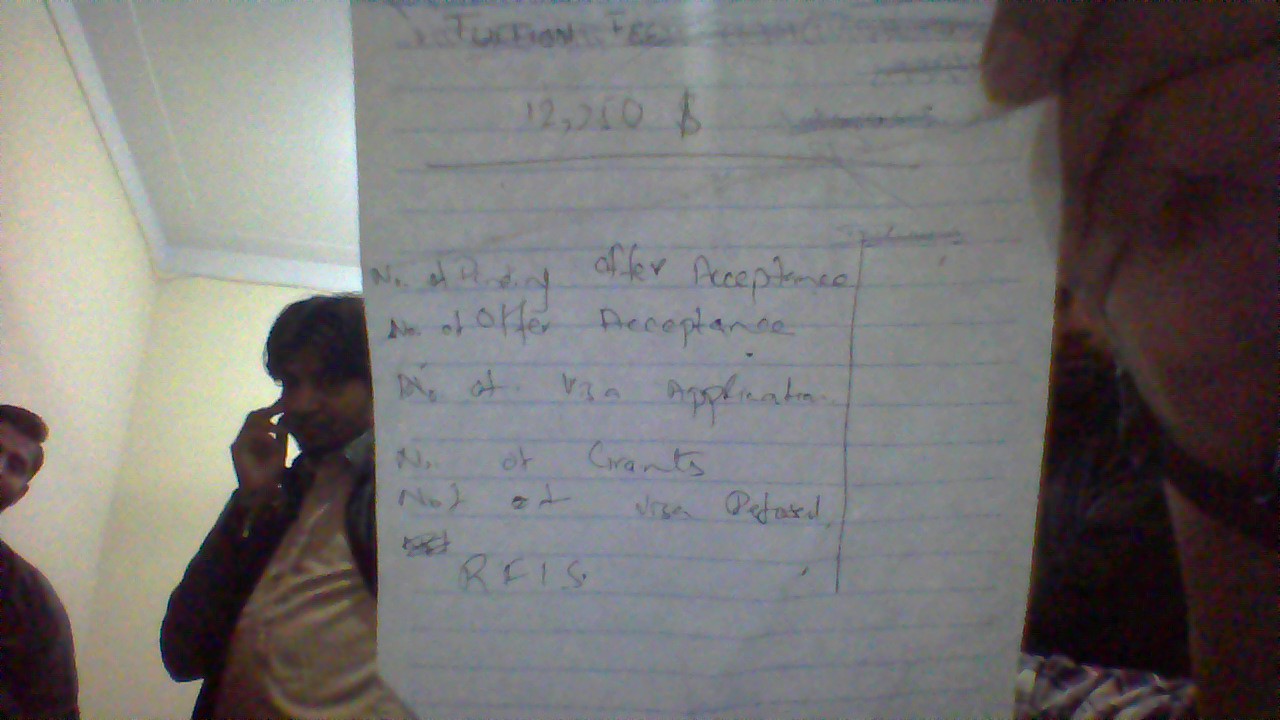 TUITION FEE
$
No. of Pending Offer Acceptance
No. of Offer Acceptance
No. of Visa Application
No. of Grants
No. of Visa Refused.
RFIS